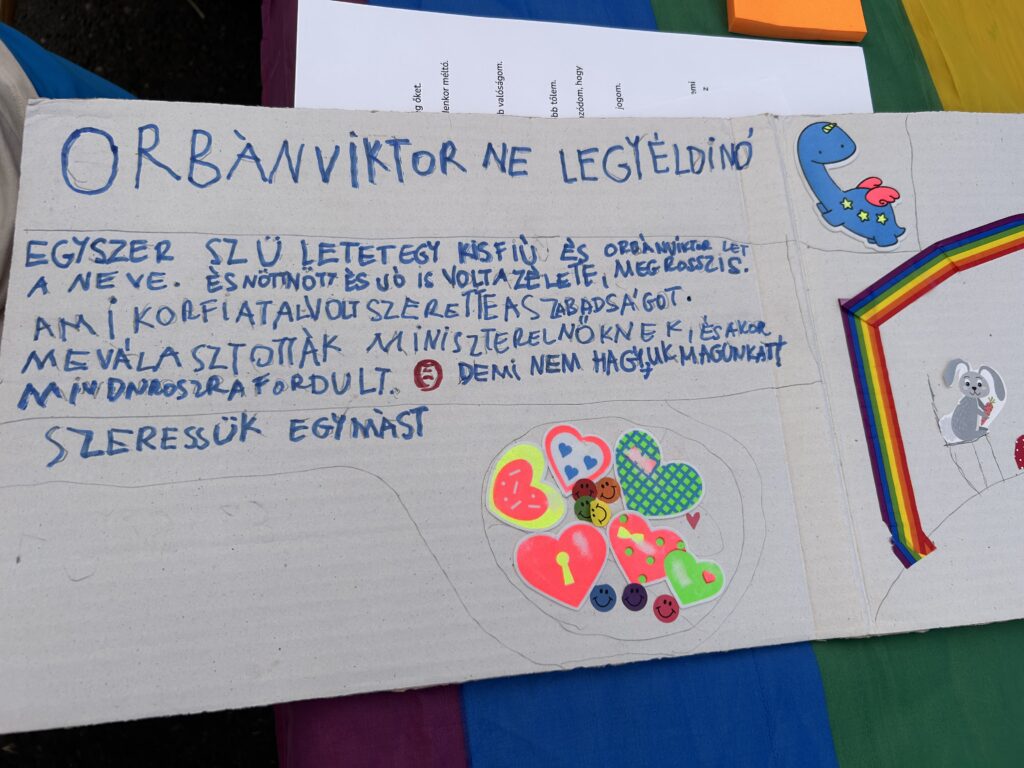 g őket.
lenkor méltó.
b valóságom.
bb tőlem.
azódom, hogy
jogom.
emi
z
ORBÀNVIKTOR NE LEGYÉLDINÓ
EGYSZER SZÜ LETETEGY KISFIÙ ÉS ORBÀNVIKTOR LET
A NEVE. ÈSNÖTTNÖTT ÉS JÓ IS VOLTAZÉLETE, MEGROSSZIS.
AMIKORFIATALVOLTSZERETTEASZABADSÁGOT.
MEVÁLASZTOTTÀK MINISZTERELNÖKNEK, ÉSAKOR
MINDNROSZRAFORDULT. DEMI NEM HAGYJUKMAGUNKATT
SZERESSÜK EGYMÀST